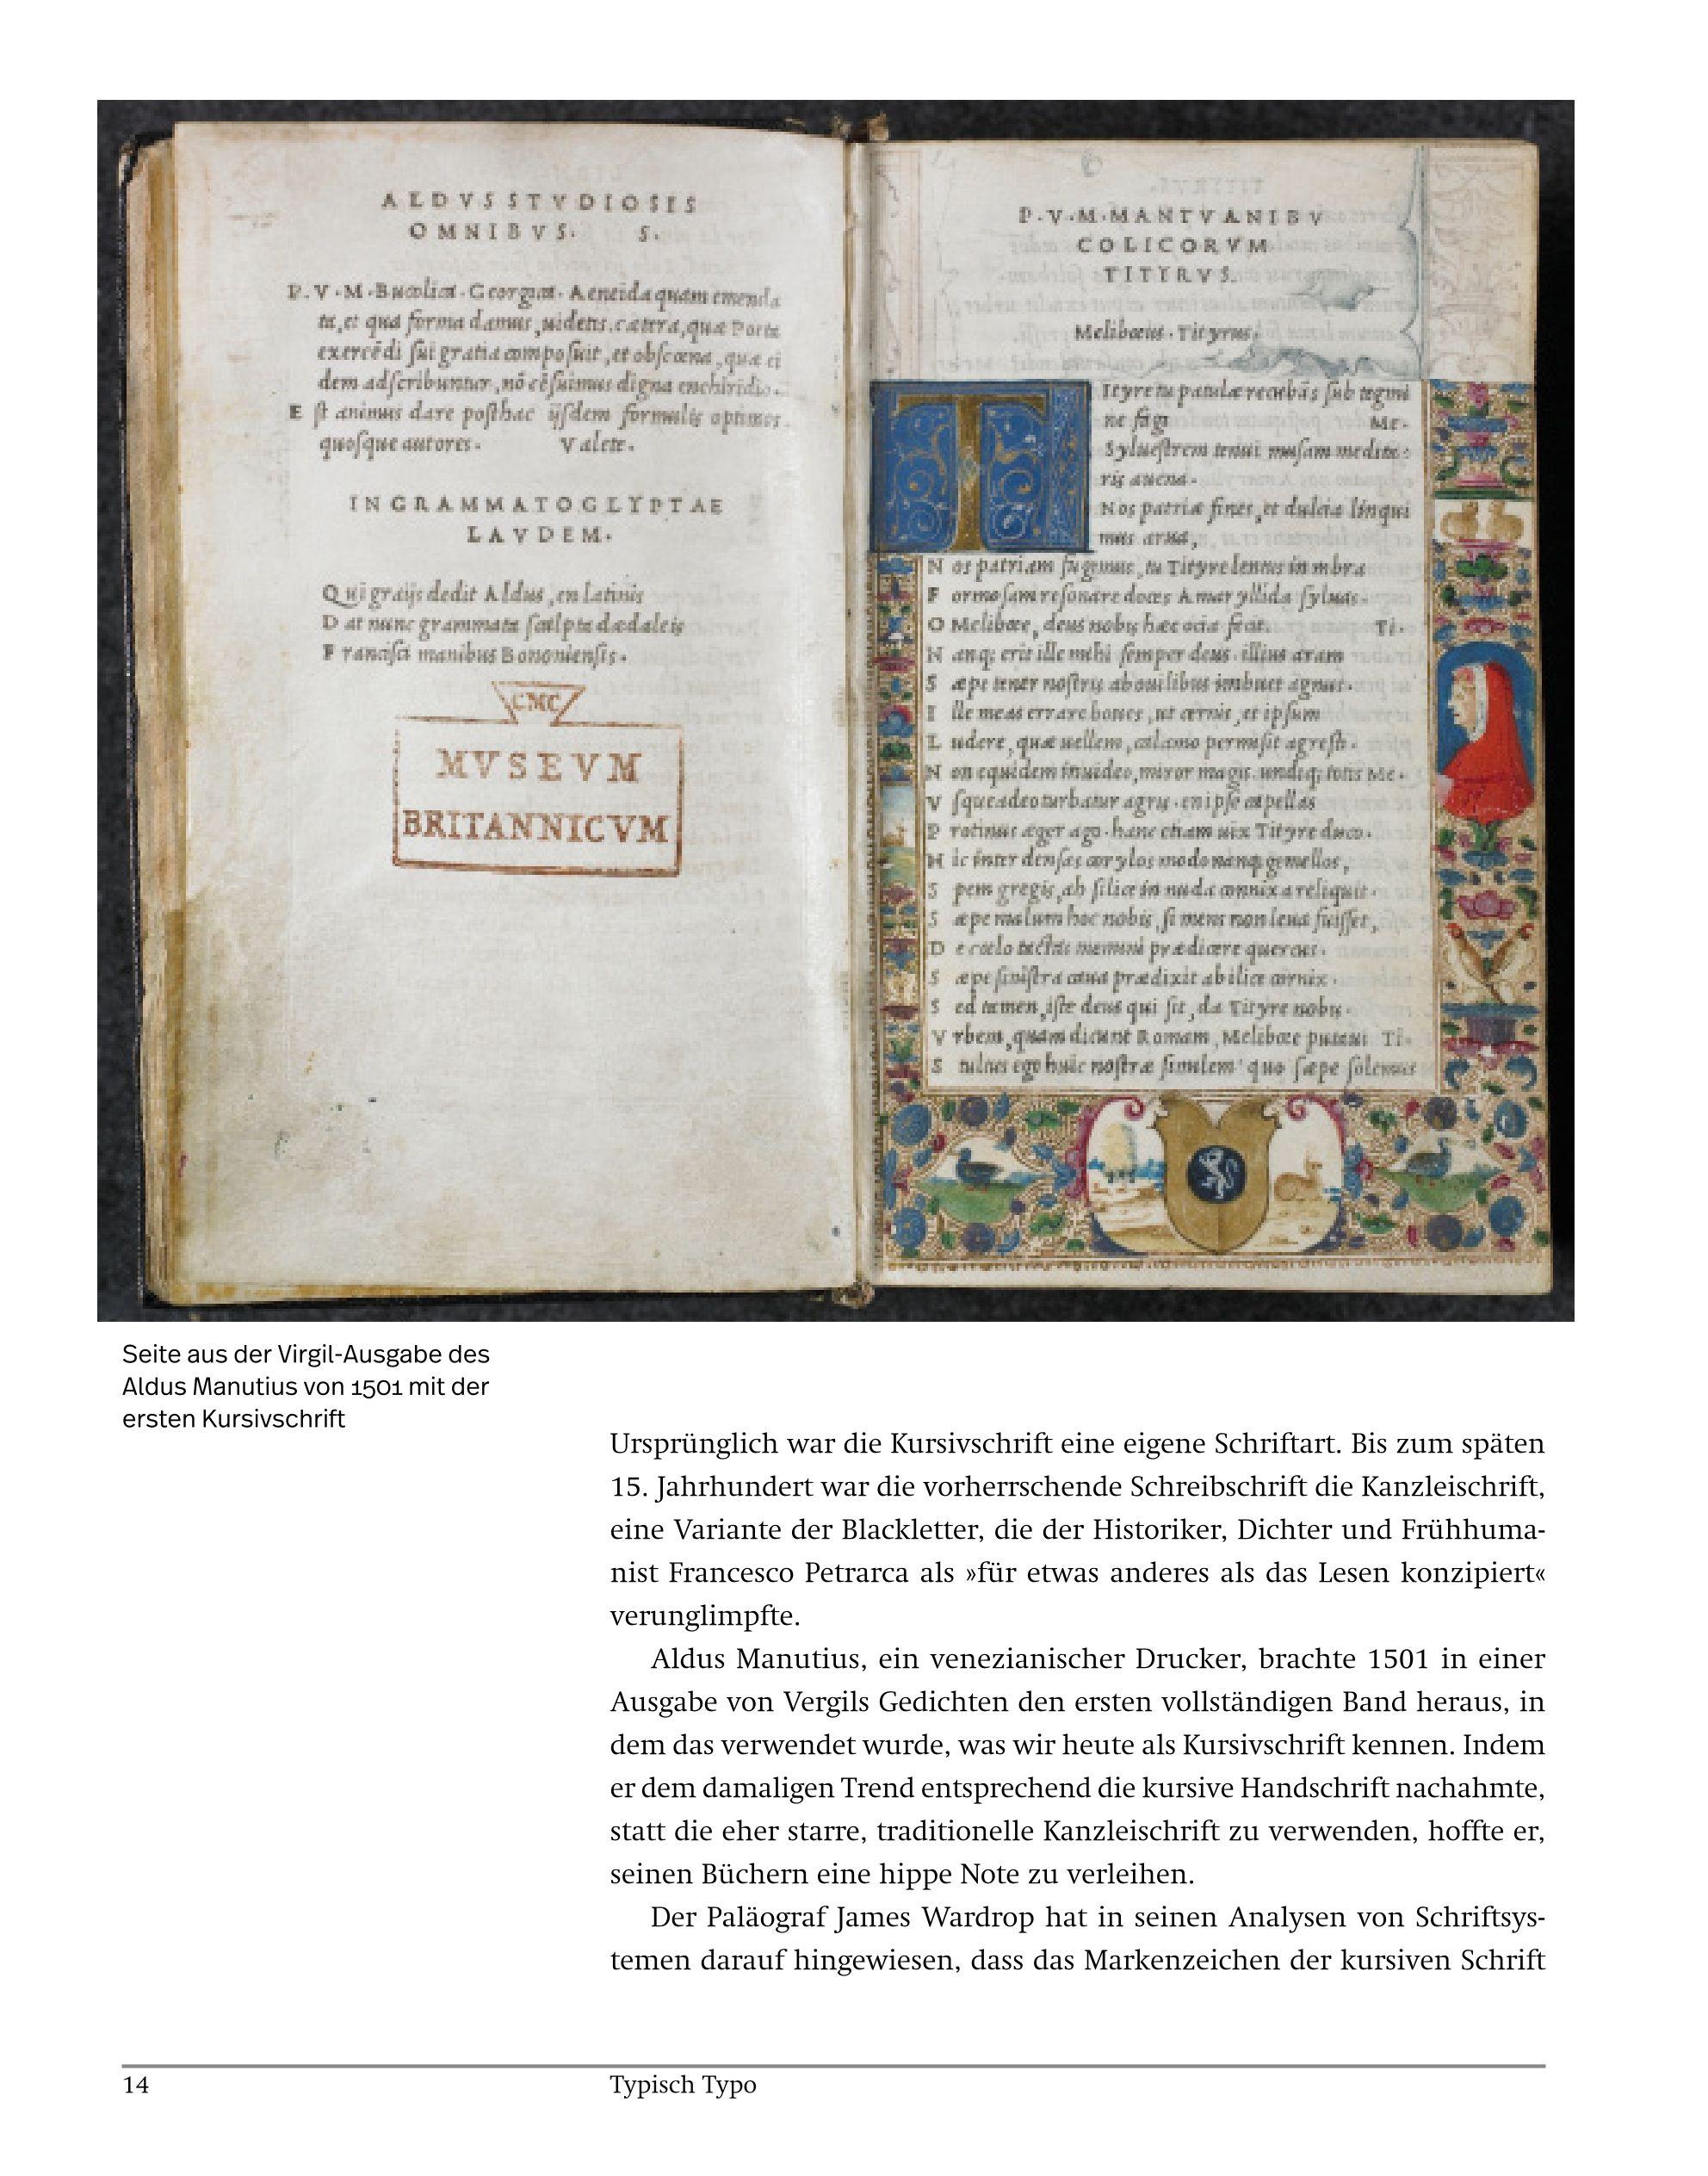 ALDVS STVDIOSIS
OMNIBVS. S.
P.V.M. Bucolica. Georgica. Aeneida quam emenda
ta, et qua forma damus, uidetis. cætera, quæ Poeta
exercēdi sui gratia composuit, et obscœna, quæ ei
dem adscribuntur, nō cēsuimus digna enchiridio.
E st animus dare posthac ijsdem formulis optimos
quosque autores. Valete.
IN GRAMMATOGLYPTAE
LAVDEM.
Qui graijs dedit Aldus, en latinis
D at nunc grammata scalpta dædaleis
F rancisci manibus Bononiensis.
CMC
MVSEVM
BRITANNICVM
P.V.M. MANTVANI BV
COLICORVM
TITYRVS.
Melibœus. Tityrus.
T
Ityre tu patulæ recubās sub tegmi
ne fagi Me.
Syluestrem tenui musam medita:
ris auena.
Nos patriæ fines, et dulcia linqui
mus arua,
N os patriam fugimus, tu Tityre lentus in umbra
F ormosam resonare doces Amaryllida syluas.
O Melibœe, deus nobis hæc ocia fecit. Ti.
N anq; erit ille mihi semper deus. illius aram
S æpe tener nostris ab ouilibus imbuet agnus.
I lle meas errare boues, ut cernis, et ipsum
L udere, quæ uellem, calamo permisit agresti.
N on equidem inuideo, miror magis. undiq; totis Me.
V sque adeo turbatur agris. en ipse capellas
P rotinus æger ago. hanc etiam uix Tityre duco.
H ic inter densas corylos modo nanq; gemellos,
S pem gregis, ah silice in nuda connixa reliquit.
S æpe malum hoc nobis, si mens non leua fuisset,
D e cœlo tactas memini prædicere quercus.
S æpe sinistra caua prædixit ab ilice cornix.
S ed tamen, iste deus qui sit, da Tityre nobis.
V rbem, quam dicunt Romam, Melibœe putaui Ti.
S tultus ego huic nostræ similem' quo sæpe solemus
Seite aus der Virgil-Ausgabe des
Aldus Manutius von 1501 mit der
ersten Kursivschrift
Ursprünglich war die Kursivschrift eine eigene Schriftart. Bis zum späten
15. Jahrhundert war die vorherrschende Schreibschrift die Kanzleischrift,
eine Variante der Blackletter, die der Historiker, Dichter und Frühhuma-
nist Francesco Petrarca als »für etwas anderes als das Lesen konzipiert«
verunglimpfte.
Aldus Manutius, ein venezianischer Drucker, brachte 1501 in einer
Ausgabe von Vergils Gedichten den ersten vollständigen Band heraus, in
dem das verwendet wurde, was wir heute als Kursivschrift kennen. Indem
er dem damaligen Trend entsprechend die kursive Handschrift nachahmte,
statt die eher starre, traditionelle Kanzleischrift zu verwenden, hoffte er,
seinen Büchern eine hippe Note zu verleihen.
Der Paläograf James Wardrop hat in seinen Analysen von Schriftsys-
temen darauf hingewiesen, dass das Markenzeichen der kursiven Schrift
14 Typisch Typo